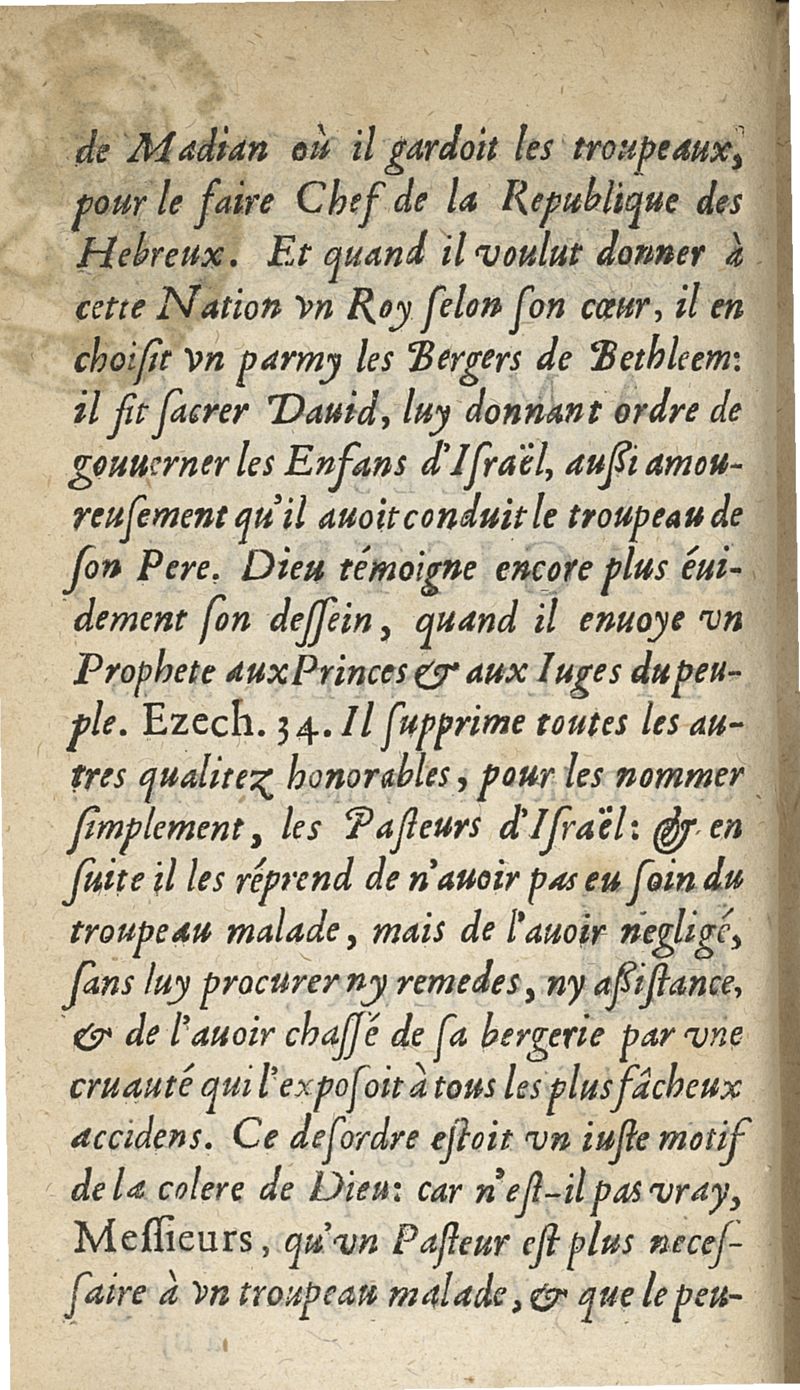 de Madian où il gardoit les troupeaux,
pour le faire Chef de la Republique des
Hebreux. Et quand il voulut donner à
cette Nation vn Roy ſelon ſon cœur, il en
choiſit vn parmy les Bergers de Bethleem:
il fit ſacrer Dauid, luy donnant ordre de
gouuerner les Enfans d'Iſraël, auſſi amou-
reuſement qu'il auoit conduit le troupeau de
ſon Pere. Dieu témoigne encore plus éui-
dement ſon deſſein, quand il enuoye vn
Prophete aux Princes & aux Iuges du peu-
ple. Ezech. 34. Il ſupprime toutes les au-
tres qualitez honorables, pour les nommer
ſimplement, les Paſteurs d'Iſraël: & en
ſuite il les réprend de n'auoir pas eu ſoin du
troupeau malade, mais de l'auoir negligé,
ſans luy procurer ny remedes, ny aſſiſtance,
& de l'auoir chaſſé de ſa bergerie par vne
cruauté qui l'expoſoit à tous les plus fâcheux
accidens. Ce deſordre eſtoit vn iuſte motif
de la colere de Dieu: car n'eſt-il pas vray,
Meſſieurs, qu'vn Paſteur eſt plus neceſ-
ſaire à vn troupeau malade, & que le peu-